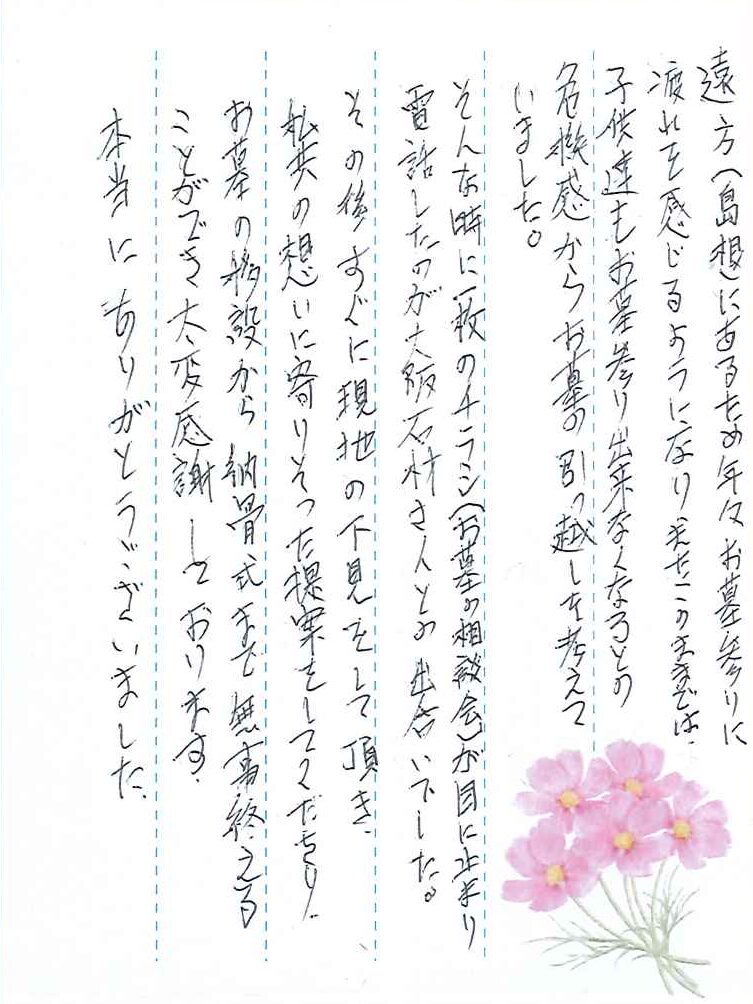 遠方(島根)にあるため年々お墓参りに
疲れを感じるようになり、またこのままでは、
子供達もお墓参り出来なくなるとの
危機感からお墓の引っ越しを考えて
いました。
そんな時に一枚のチラシ(お墓の相談会)が目に止まり
電話したのが大阪石材さんとの出合いでした。
その後すぐに現地の下見をして頂き、
私共の想いに寄りそった提案をしてくださり、
お墓の移設から納骨式まで無事終える
ことができ大変感謝しております。
本当にありがとうございました。